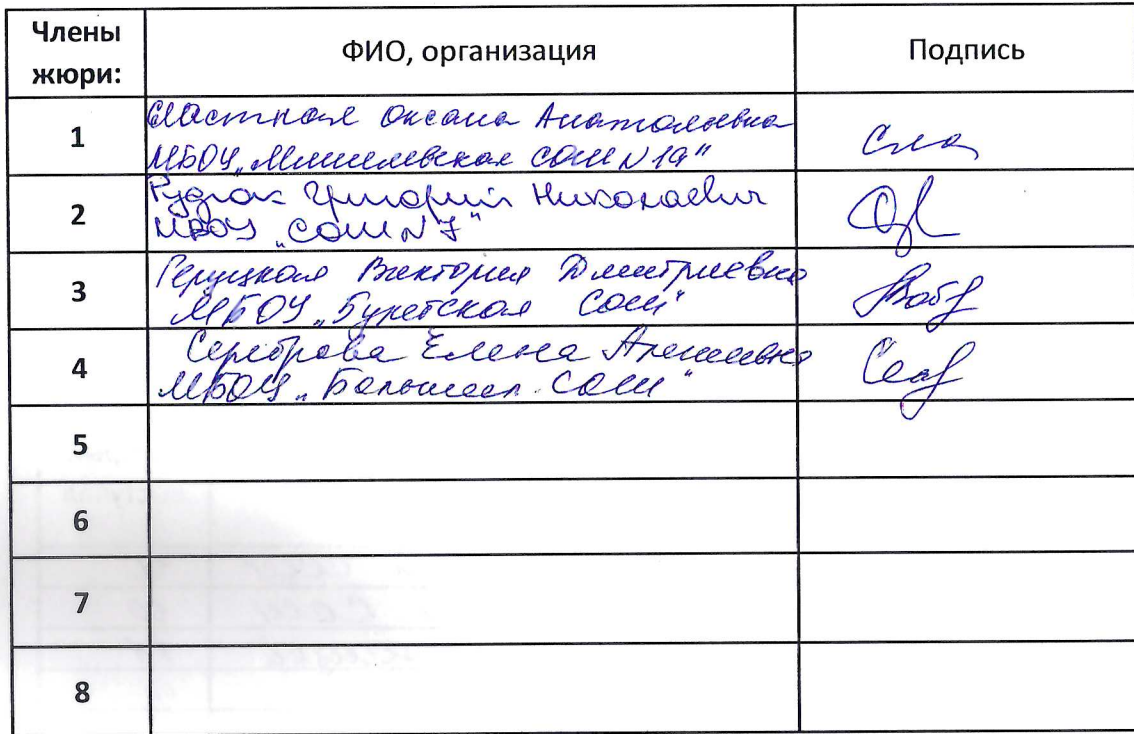 Члены жюри: ФИО, организация Подпись
1 Сластная Оксана Анатольевна
МБОУ „Мишелевская СОШ N19"
2 Рудяк Григорий Николаевич
МБОУ „СОШ N7"
3 Геруцкая Виктория Дмитриевна
МБОУ „Буретская СОШ"
4 Сереброва Елена Алексеевна
МБОУ „Большеел. СОШ"
5
6
7
8